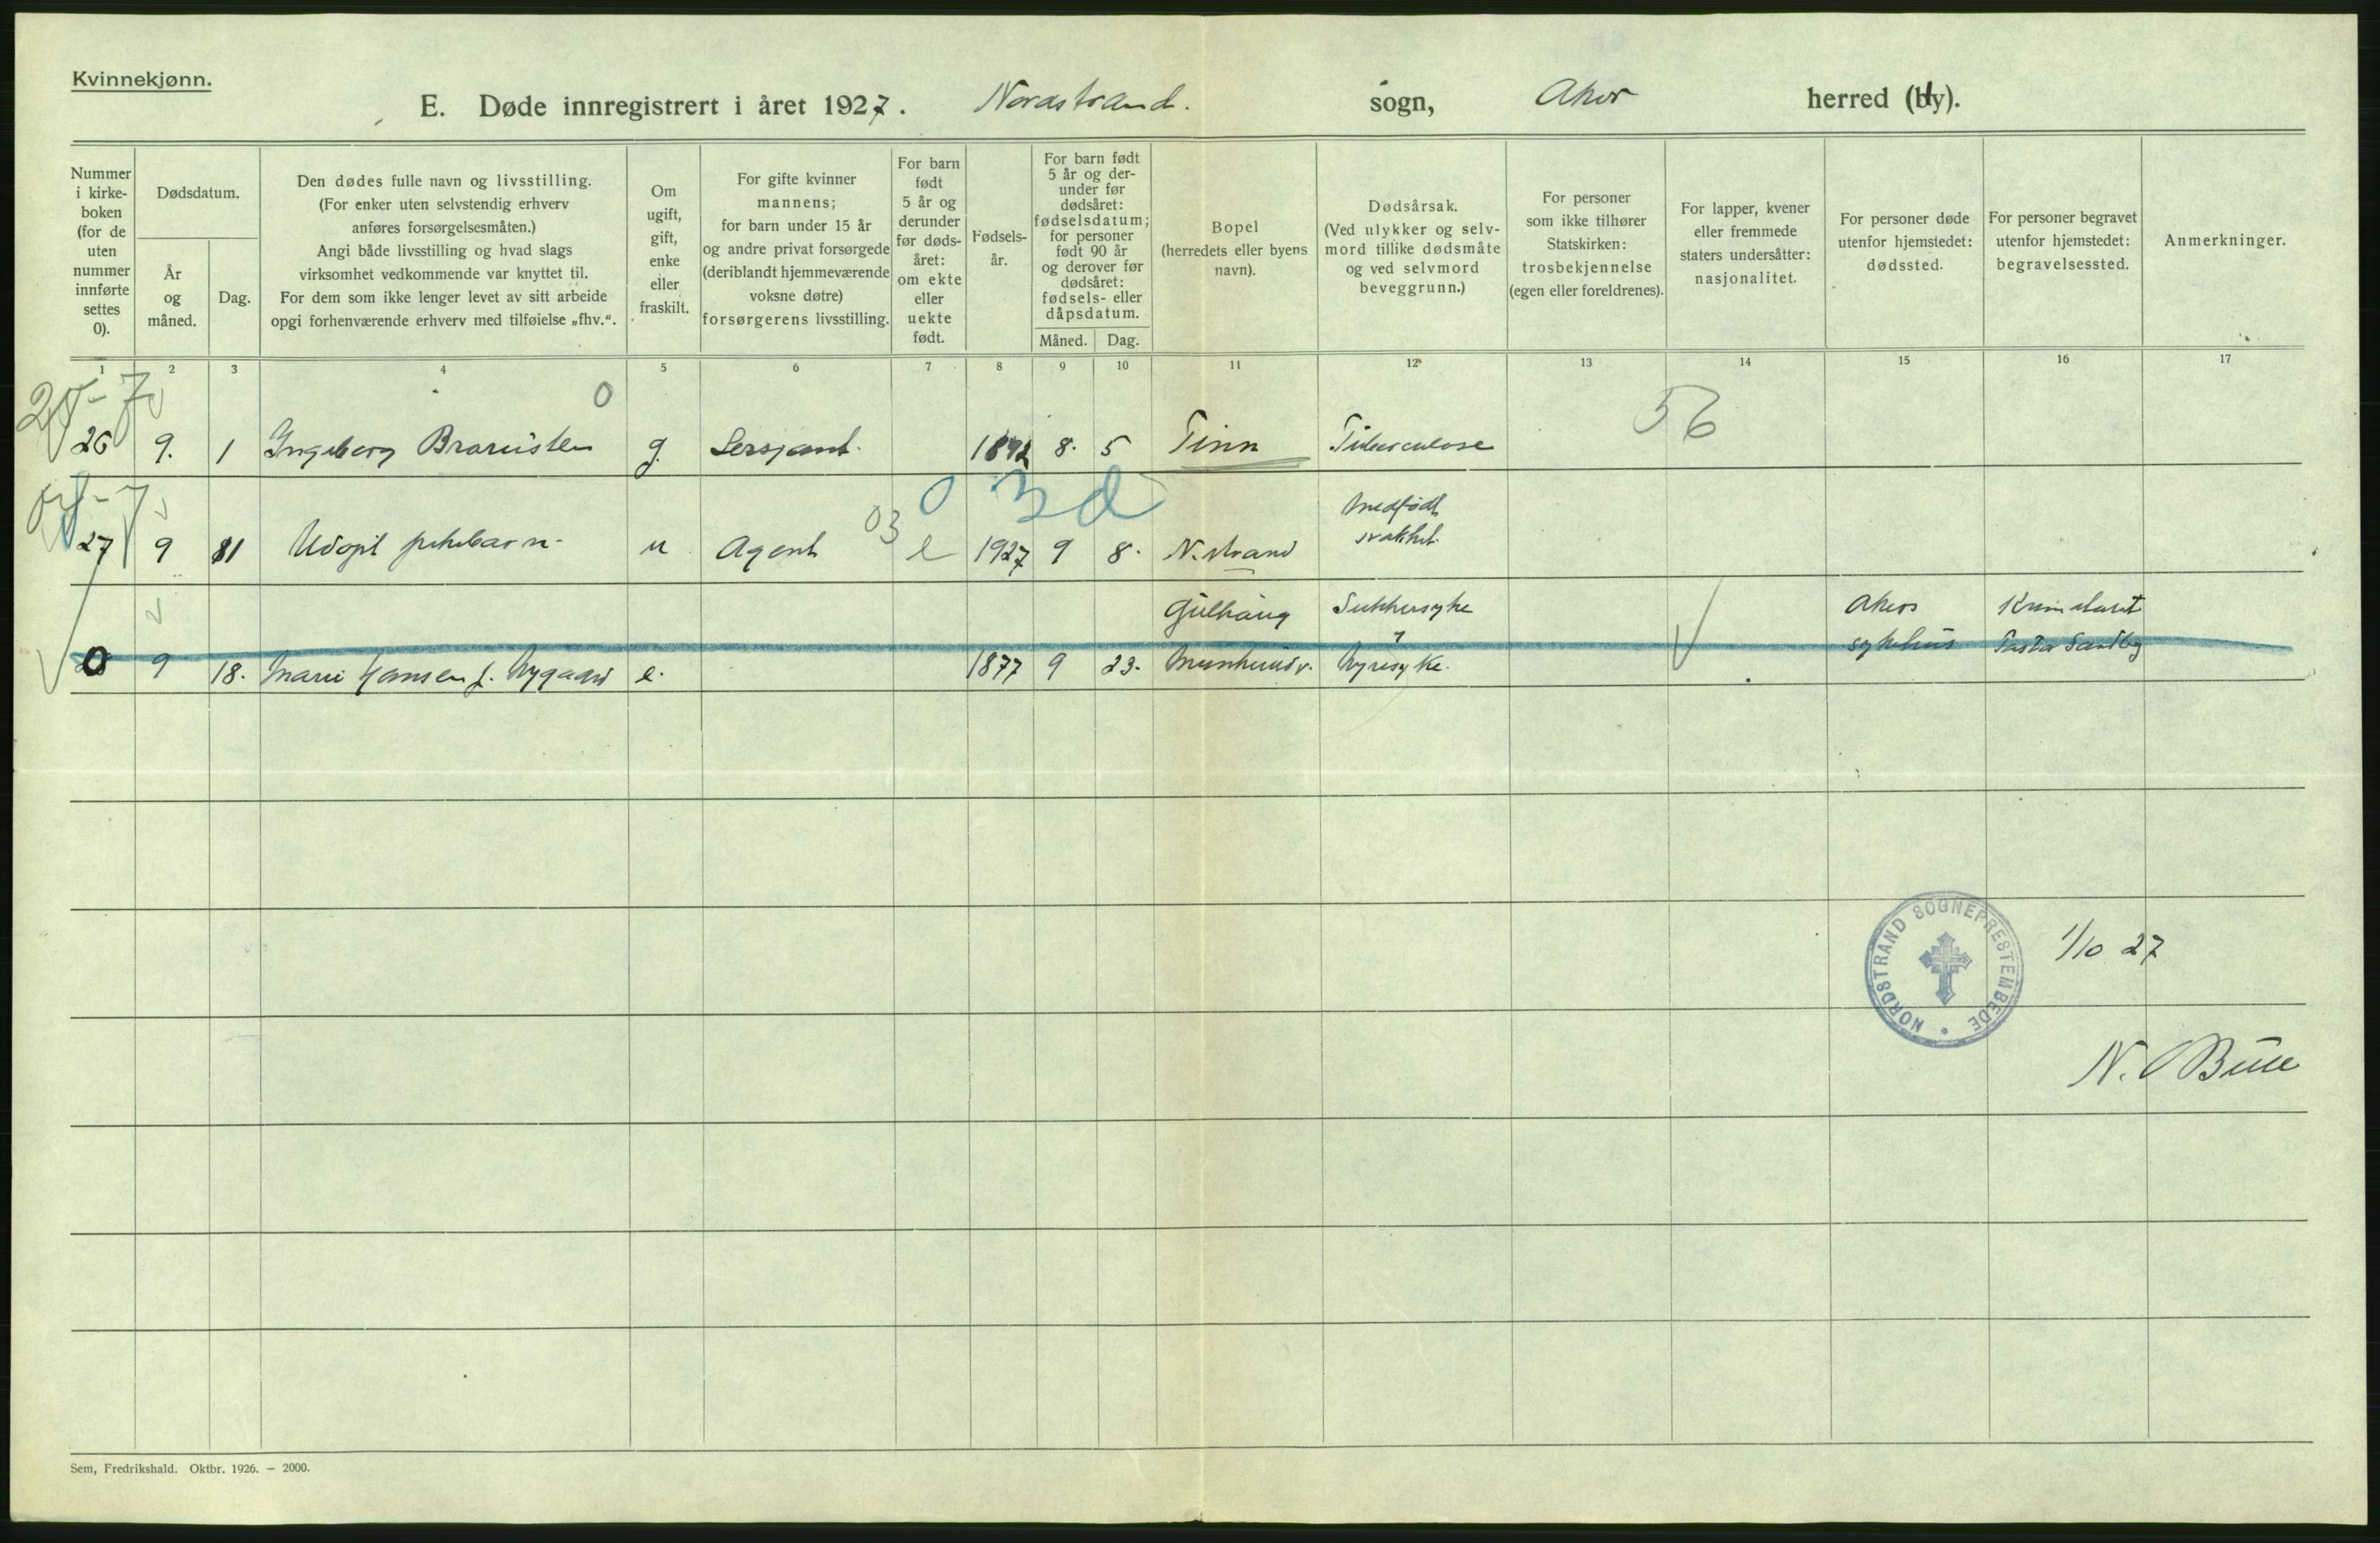 Kvinnekjønn.
E. Døde innregistrert i året 1927. Nordstrand. sogn, Aker herred (by).
Nummer i kirke-boken (for de uten nummer innførte settes 0).
Dødsdatum.
År og måned.
Dag.
Den dødes fulle navn og livsstilling.
(For enker uten selvstendig erhverv
anføres forsørgelsesmåten.)
Angi både livsstilling og hvad slags
virksomhet vedkommende var knyttet til.
For dem som ikke lenger levet av sitt arbeide
opgi forhenværende erhverv med tilføielse „fhv.“.
Om
ugift,
gift,
enke
eller
fraskilt.
For gifte kvinner
mannens;
for barn under 15 år
og andre privat forsørgede
(deriblandt hjemmeværende
voksne døtre)
forsørgerens livsstilling.
For barn
født
5 år og
derunder
før døds-
året:
om ekte
eller
uekte
født.
Fødsels-
år.
For barn født
5 år og der-
under før
dødsåret:
fødselsdatum;
for personer
født 90 år
og derover før
dødsåret:
fødsels- eller
dåpsdatum.
Måned. Dag.
Bopel
(herredets eller byens
navn).
Dødsårsak.
(Ved ulykker og selv-
mord tillike dødsmåte
og ved selvmord
beveggrunn.)
For personer
som ikke tilhører
Statskirken:
trosbekjennelse
(egen eller foreldrenes).
For lapper, kvener
eller fremmede
staters undersåtter:
nasjonalitet.
For personer døde
utenfor hjemstedet:
dødssted.
For personer begravet
utenfor hjemstedet:
begravelsessted.
Anmerkninger.
1 2 3 4 5 6 7 8 9 10 11 12 13 14 15 16 17
0 56
26 9. 1 Ingeborg g. Sersjant. 1892 8. 5 Tinn Tuberculose
0 3 d
03
Medfødt
27 9 11 Udøpt pikebarn u Agent e 1927 9 8. N.strand svakhet.
Gulhaug Sukkersyke Akers Krematoriet
sykehus Pastor Sandberg
0 9 18. Marie Hansen f. Nygaard e. 1877 9 23. Munkerudv. Nyresyke.
NORDSTRAND SOGNEPRESTEMBEDE
1/10 27
N. Bull
Sem, Fredrikshald. Oktbr. 1926. — 2000.